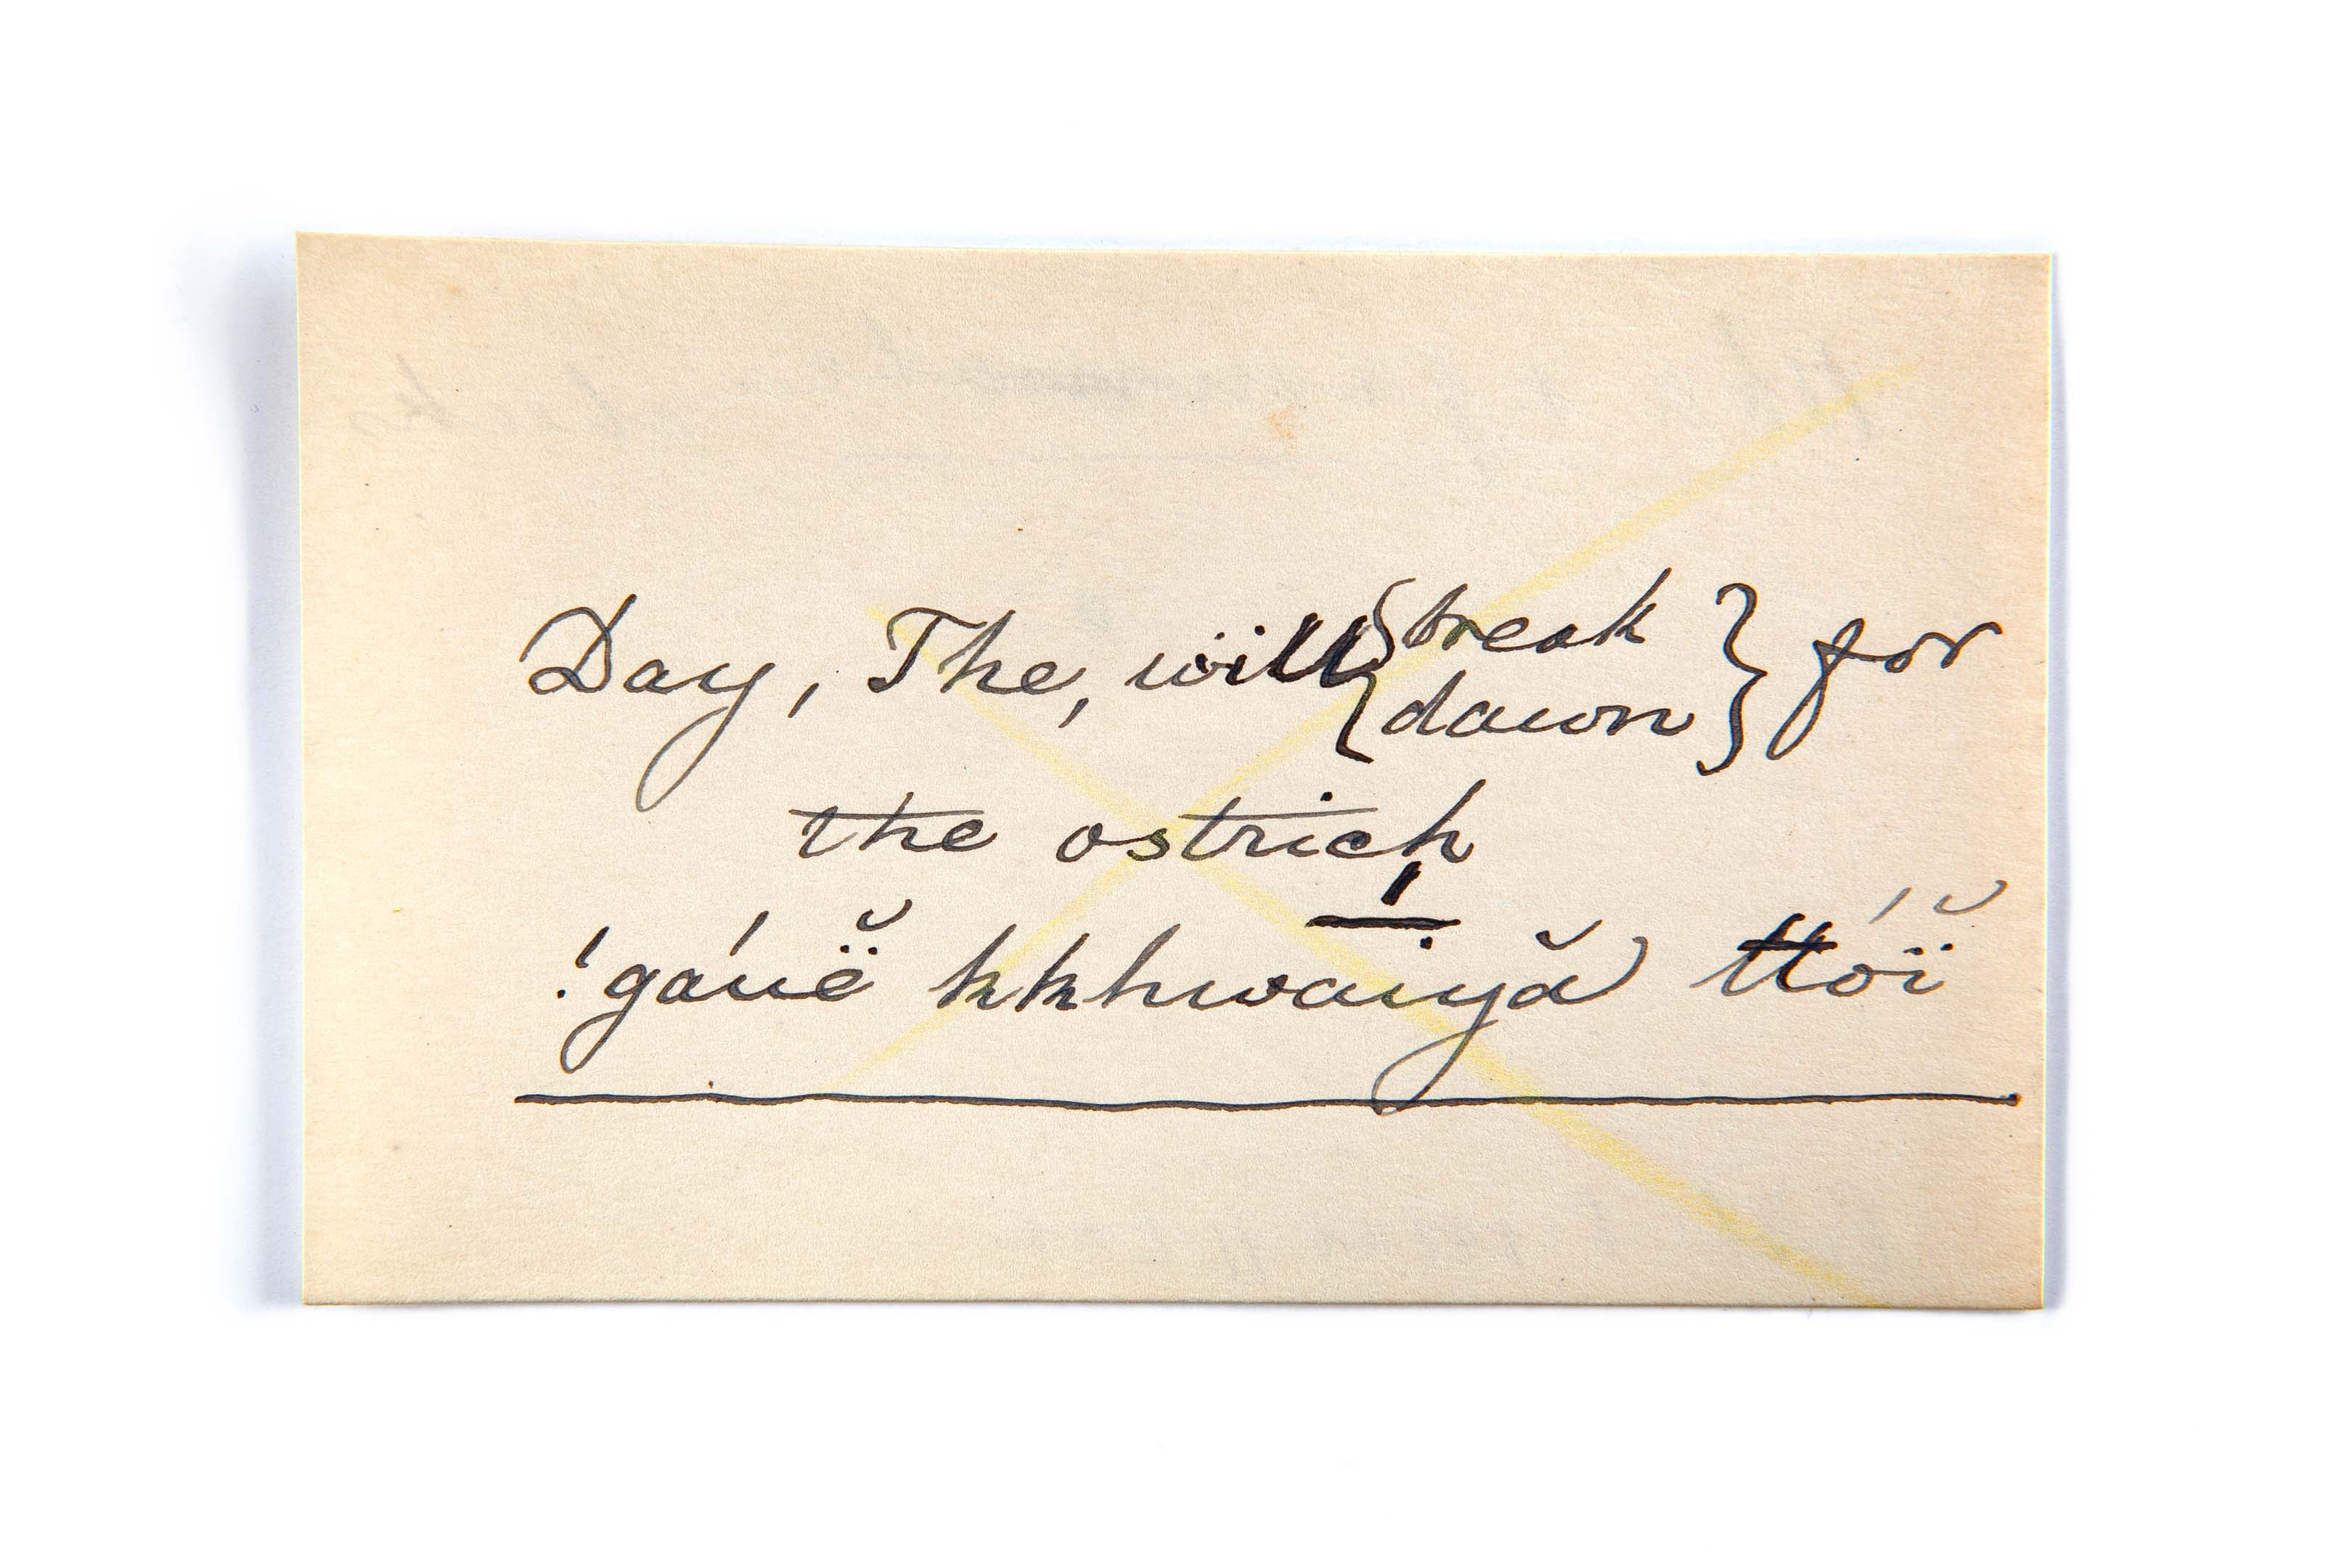 Day, The, will { break / dawn } for
the ostrich
!gáuë̆ kkhwā́iyă ttóï̆